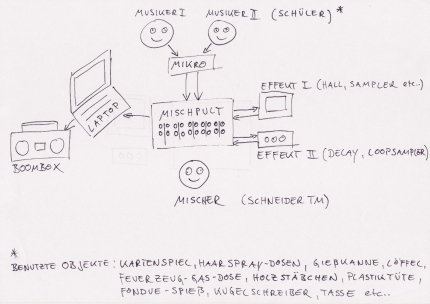 MUSIKER I MUSIKER II (SCHÜLER) *
MIKRO
EFFEKT I (HALL, SAMPLER etc..)
LAPTOP
MISCHPULT
BOOMBOX
EFFEKT II (DECAY, LOOPSAMPLER)
MISCHER (SCHNEIDER TM)
*
BENUTZTE OBJEKTE: KARTENSPIEL, HAARSPRAY-DOSEN, GIEßKANNE, LÖFFEL,
FEUERZEUG-GAS-DOSE, HOLZSTÄBCHEN, PLASTIKTÜTE,
FONDUE-SPIEß, KUGELSCHREIBER, TASSE etc..